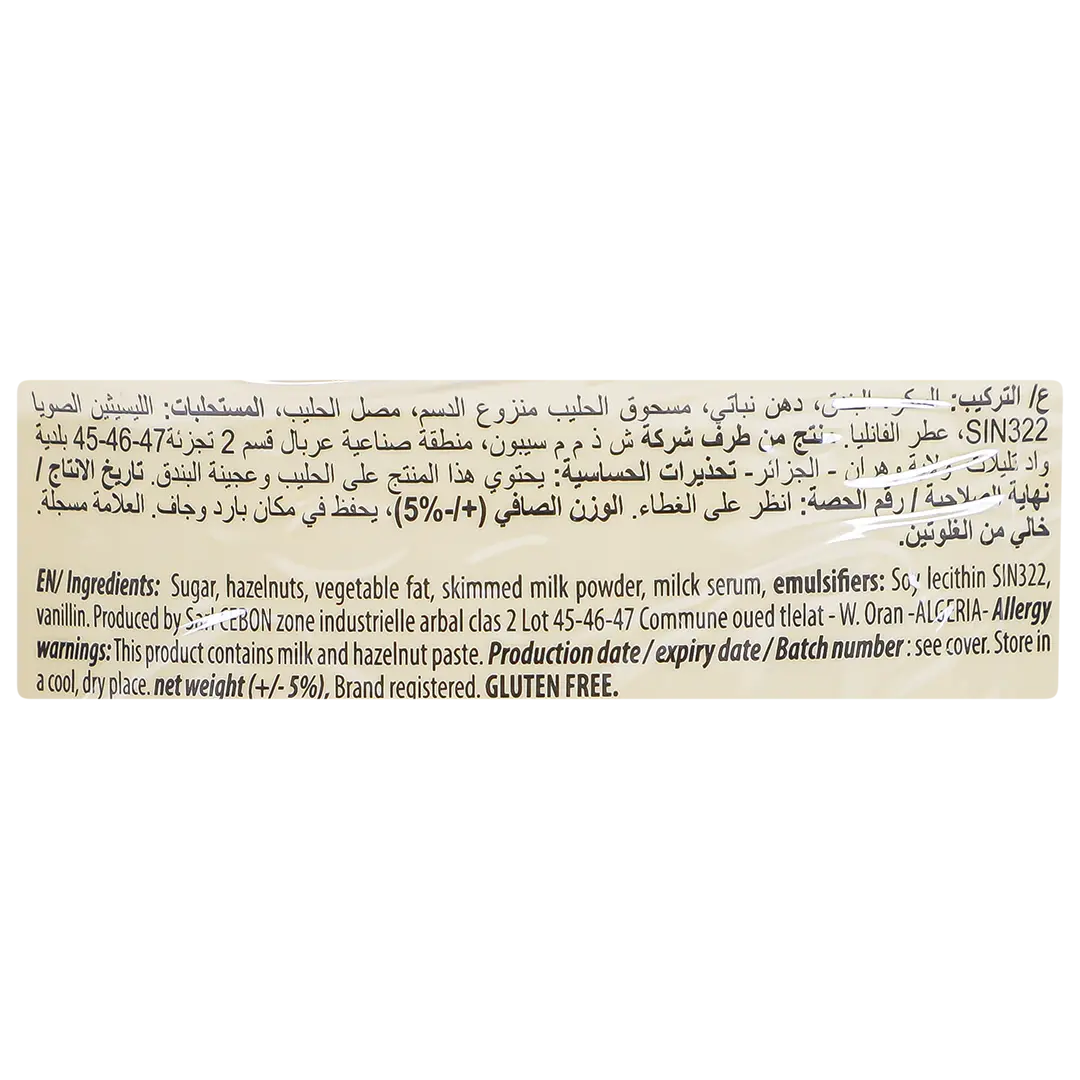 ع/ التركيب: السكر، البندق، دهن نباتي، مسحوق الحليب منزوع الدسم، مصل الحليب، المستحلبات: الليسيثين الصويا
SIN322، عطر الفانليا. نتج من طرف شركة ش ذ م م سيبون، منطقة صناعية عربال قسم 2 تجزئة 47-46-45 بلدية
واد تليلات ولاية وهران - الجزائر - تحذيرات الحساسية: يحتوي هذا المنتج على الحليب وعجينة البندق. تاريخ الانتاج /
نهاية الصلاحية / رقم الحصة: انظر على الغطاء. الوزن الصافي (+/-5%)، يحفظ في مكان بارد وجاف. العلامة مسجلة.
خالي من الغلوتين.
EN/ Ingredients: Sugar, hazelnuts, vegetable fat, skimmed milk powder, milck serum, emulsifiers: Soy lecithin SIN322,
vanillin. Produced by Sarl CEBON zone industrielle arbal clas 2 Lot 45-46-47 Commune oued tlelat - W. Oran -ALGERIA- Allergy
warnings: This product contains milk and hazelnut paste. Production date / expiry date / Batch number : see cover. Store in
a cool, dry place. net weight (+/- 5%), Brand registered. GLUTEN FREE.